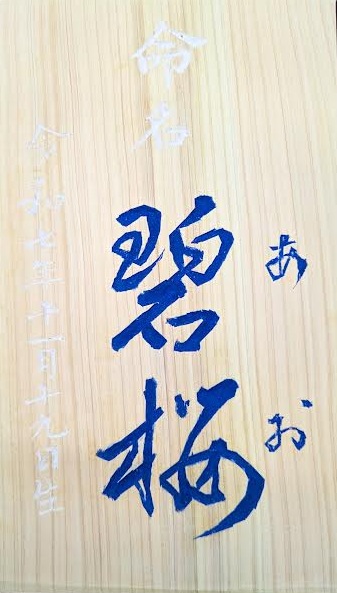 命名
あお
碧桜
令和七年十一月十九日生